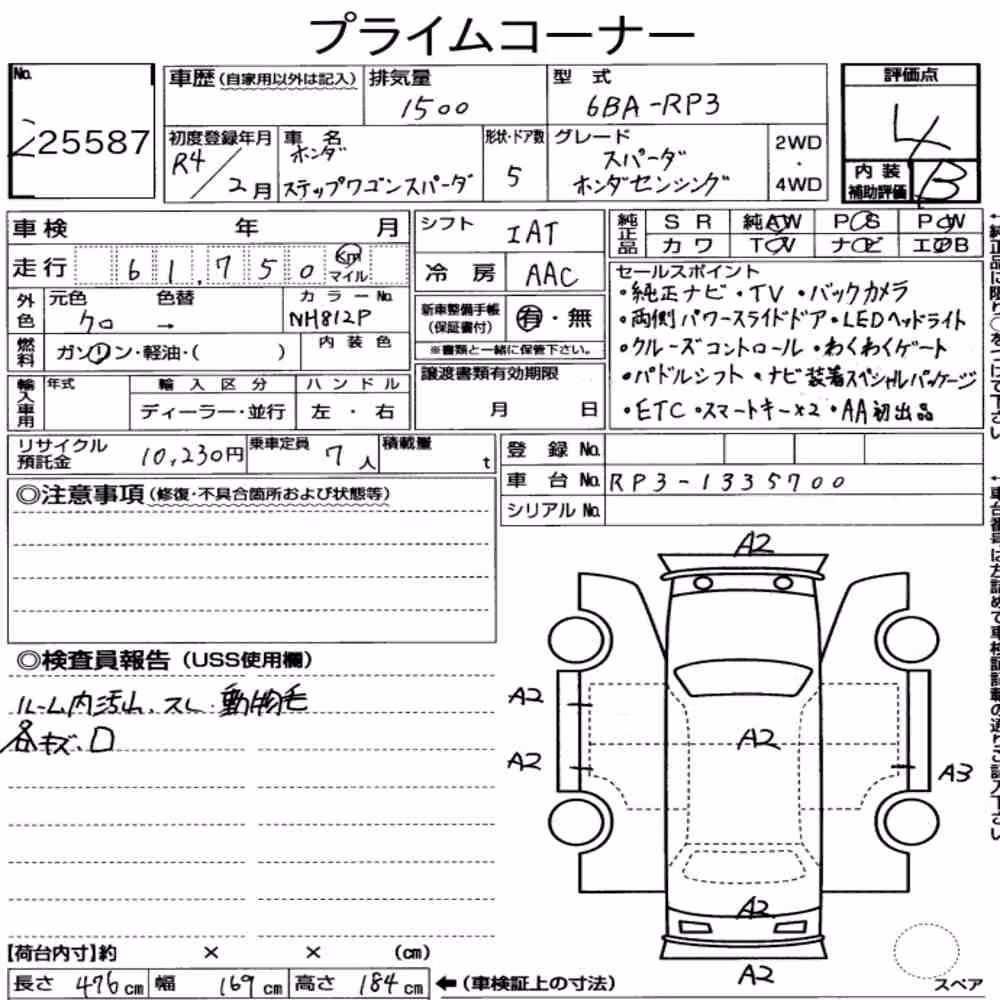 プライムコーナー
No.
25587
車歴（自家用以外は記入）
排気量
1500
型 式
6BA-RP3
評価点
4
初度登録年月
R4/2月
車 名
ホンダ
ステップワゴンスパーダ
形状・ドア数
5
グレード
スパーダ
ホンダセンシング
2WD
・
4WD
内 装
補助評価
B
車検 年 月
シフト
IAT
純正品
S R 純AW P S P W
カ ワ T V ナ ビ エ B
走行 61,750 Km
マイル
冷 房
AAC
セールスポイント
・純正ナビ・TV・バックカメラ
・両側パワースライドドア・LEDヘッドライト
・クルーズコントロール・わくわくゲート
・パドルシフト・ナビ装着スペシャルパッケージ
・ETC・スマートキー×2・AA初出品
外色
元色 色替
クロ →
カラーNo.
NH812P
新車整備手帳
（保証書付）
有・無
※書類と一緒に保管下さい。
燃料
ガソリン・軽油・（ ）
内 装 色
輸入車用
年式
輸 入 区 分
ディーラー・並行
ハ ン ド ル
左 ・ 右
譲渡書類有効期限
月 日
リサイクル
預託金
10,230円
乗車定員
7人
積載量
t
登 録 No.
車 台 No.
RP3-1335700
シリアル No.
◎注意事項（修復・不具合箇所および状態等）
◎検査員報告（USS使用欄）
ルーム内汚れ.スレ.動物毛
各キズ.
A2
A2
A2
A2
A3
A2
A2
【荷台内寸】約 × × （cm）
長さ 476cm 幅 169cm 高さ 184cm
←（車検証上の寸法）
スペア